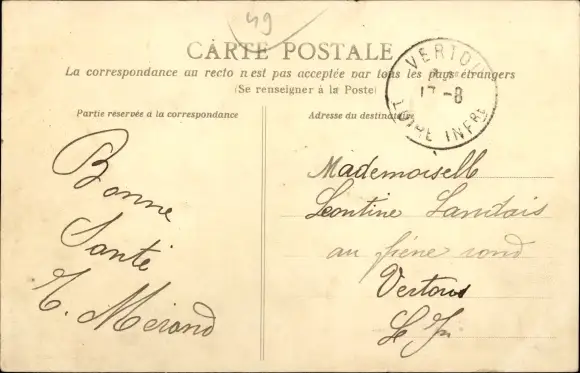 49
CARTE POSTALE
La correspondance au recto n'est pas acceptée par tous les pays étrangers
(Se renseigner à la Poste)
VERTOU
17-8
LOIRE INFRE
Partie réservée à la correspondance
Adresse du destinataire
Bonne
Santé
Mademoiselle
Léontine Landais
au rond
Vertou